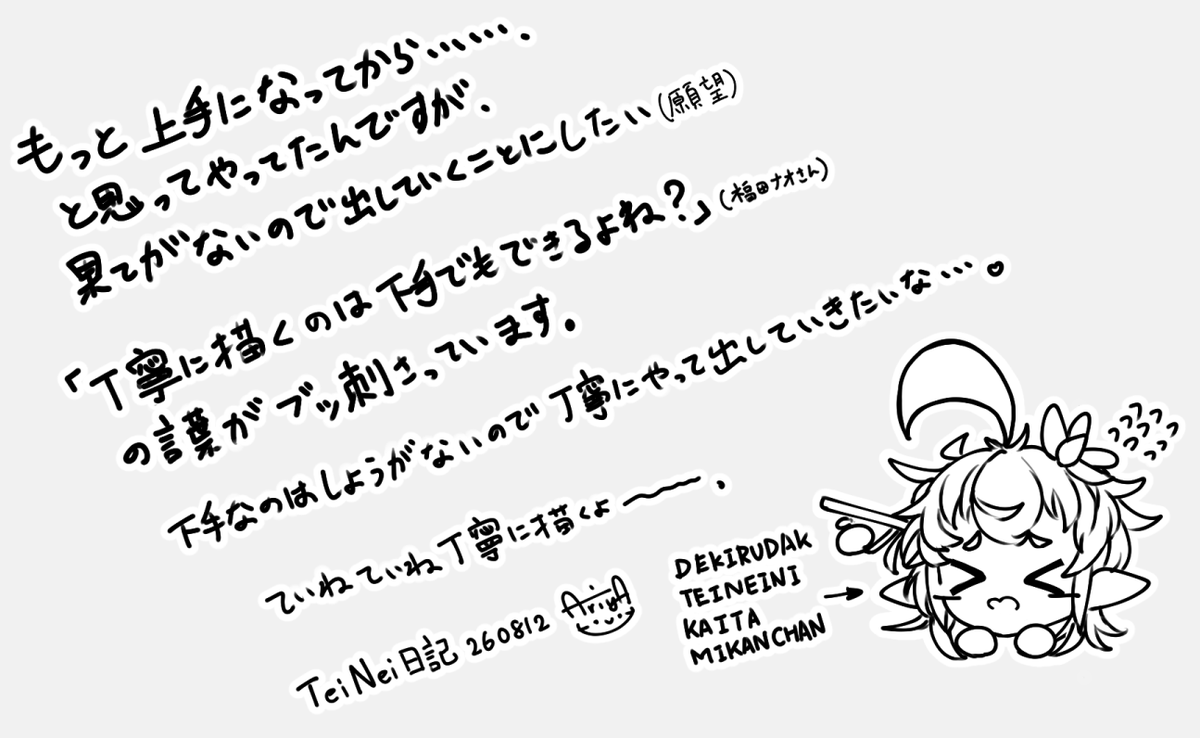 もっと上手になってから…….
と思ってやってたんですが、
果てがないので出していくことにしたい(願望)
「丁寧に描くのは下手でもできるよね?」(福田ナオさん)
の言葉がブッ刺さっています。
下手なのはしょうがないので丁寧にやって出していきたいな…。
ていねていね丁寧に描くよ〜〜、
TeiNei日記 260812 AriyA
DEKIRUDAK
TEINEINI
KAITA
MIKANCHAN
つつつつ
つつつ
つつつ